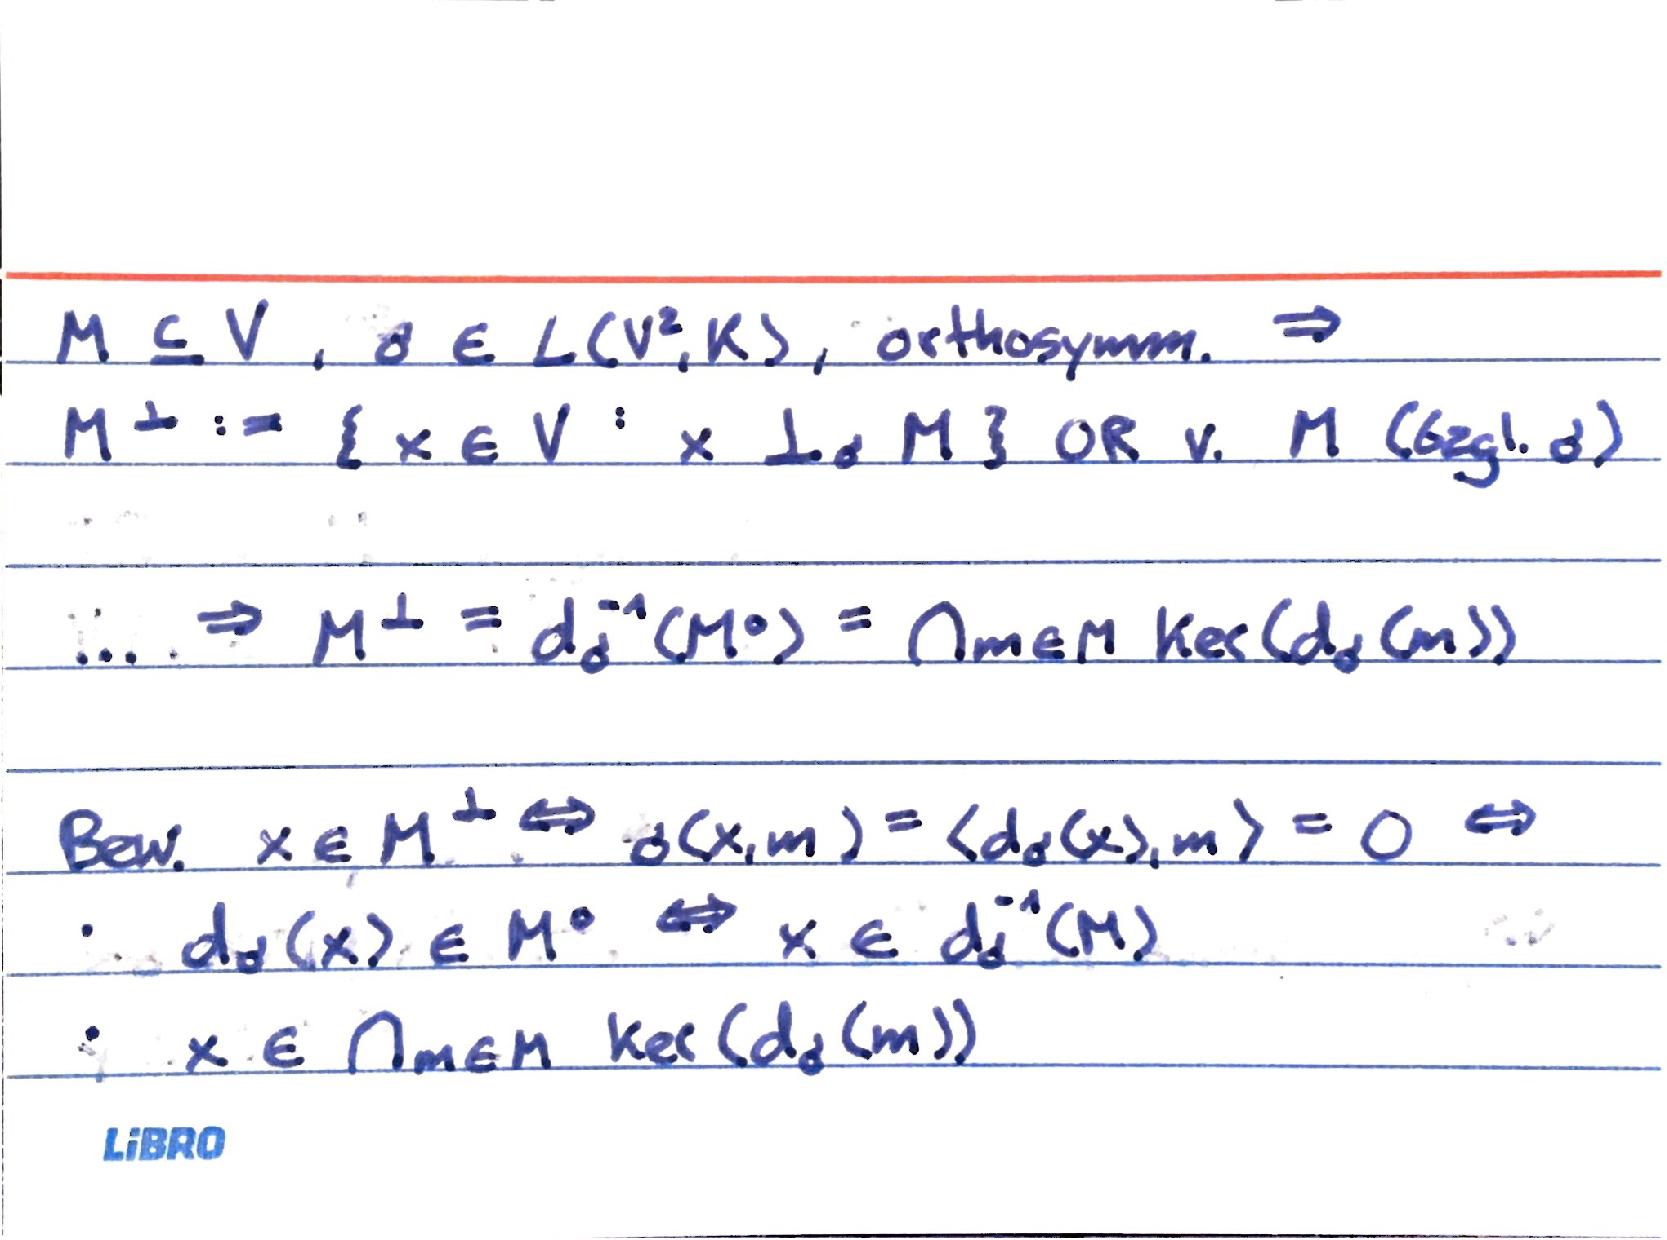 M ⊆ V, σ ∈ L(V², K), orthosymm. ⇒
M^⊥ := { x ∈ V : x ⊥_σ M } OR v. M (bzgl. σ)
... ⇒ M^⊥ = d_σ^-1(M°) = ⋂_{m∈M} ker(d_σ(m))
Bew. x ∈ M^⊥ ⇔ σ(x,m) = ⟨d_σ(x), m⟩ = 0 ⇔
• d_σ(x) ∈ M° ⇔ x ∈ d_σ^-1(M)
• x ∈ ⋂_{m∈M} ker(d_σ(m))
LiBRO